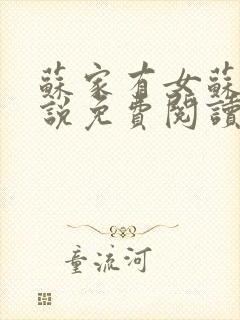 蘇家有女蘇
說免費閱讀
童流河